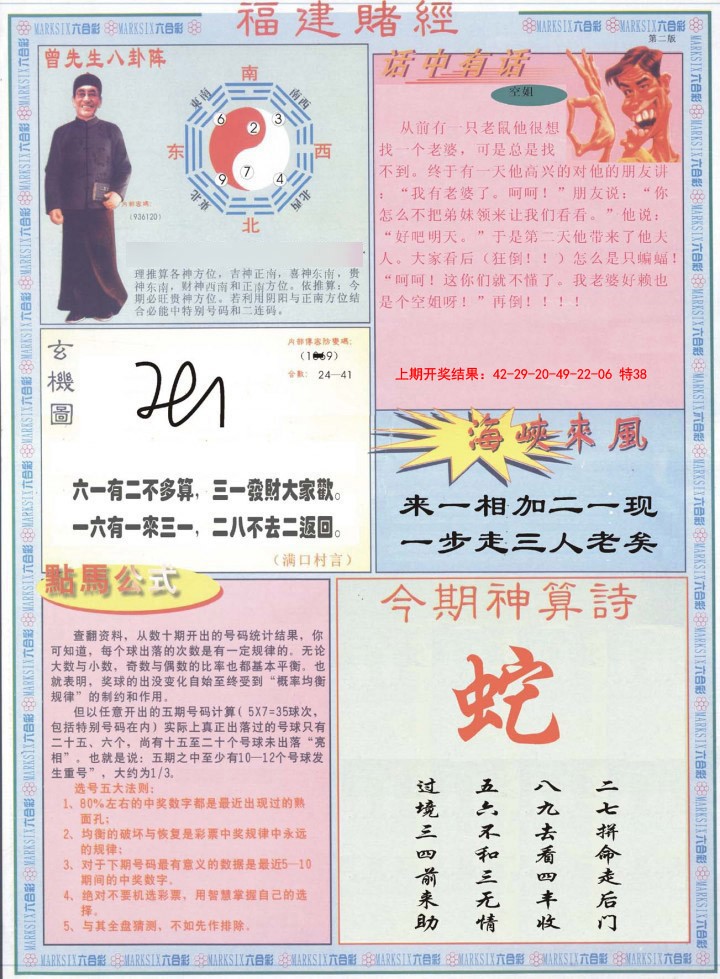 福建賭經
第二版
MARKSIX六合彩
曾先生八卦阵
南
東南
南西
东
西
東北
北西
北
6
2
3
9
7
4
内部密碼:
(936120)
理推算各神方位，吉神正南，喜神东南，贵
神东南，财神西南和正南方位。依推算：今
期必旺贵神方位。若利用阴阳与正南方位结
合必能中特别号码和二连码。
话中有话
空姐
从前有一只老鼠他很想
找一个老婆，可是总是找
不到。终于有一天他高兴的对他的朋友讲
：“我有老婆了。呵呵！”朋友说：“你
怎么不把弟妹领来让我们看看。”他说：
“好吧明天。”于是第二天他带来了他夫
人。大家看后（狂倒！！）怎么是只蝙蝠！
“呵呵！这你们就不懂了。我老婆好赖也
是个空姐呀！”再倒！！！！
上期开奖结果：42-29-20-49-22-06 特38
玄機圖
合数: 24—41
六一有二不多算，三一發財大家歡。
一六有一來三一，二八不去二返回。
（满口村言）
海峽來風
来一相加二一现
一步走三人老矣
點馬公式
查翻资料，从数十期开出的号码统计结果，你
可知道，每个球出落的次数是有一定规律的。无论
大数与小数，奇数与偶数的比率也都基本平衡。也
就表明，奖球的出没变化自始至终受到“概率均衡
规律”的制约和作用。
但以任意开出的五期号码计算( 5X7=35球次，
包括特别号码在内）实际上真正出落过的号球只有
二十五、六个，尚有十五至二十个号球未出落“亮
相”。也就是说：五期之中至少有10—12个号球发
生重号”，大约为1/3。
选号五大法则：
1、80%左右的中奖数字都是最近出现过的熟
面孔；
2、均衡的破坏与恢复是彩票中奖规律中永远
的规律；
3、对于下期号码最有意义的数据是最近5—10
期间的中奖数字。
4、绝对不要机选彩票，用智慧掌握自己的选
择。
5、与其全盘猜测，不如先作排除。
今期神算詩
蛇
二七拼命走后门
八九去看四丰收
五六不和三无情
过境三四前来助